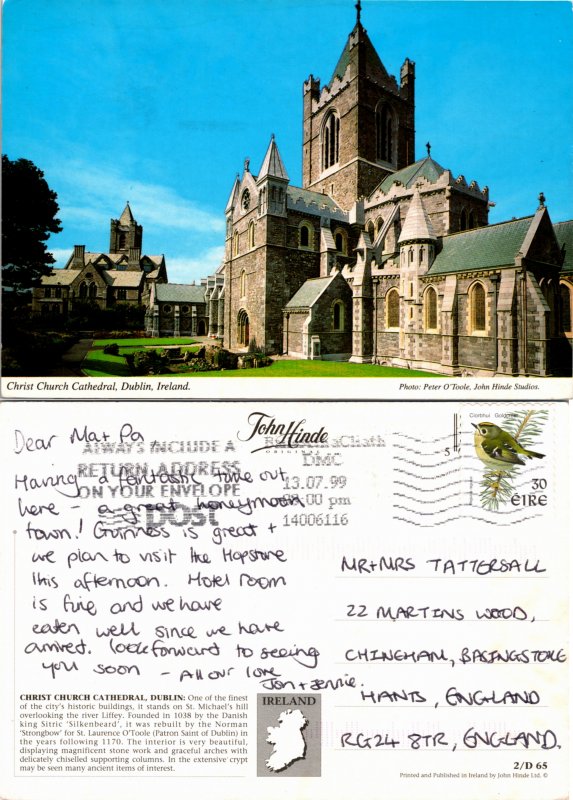 Christ Church Cathedral, Dublin, Ireland.
Photo: Peter O'Toole, John Hinde Studios.
John Hinde
ORIGINAL
ALWAYS INCLUDE A
RETURN ADDRESS
ON YOUR ENVELOPE
post
DMC
13.07.99
pm
14006116
5
Goldcrest
30
ÉIRE
Dear Ma + Pa
Having a fantastic time out
here - a great honeymoon
town! Guinness is great +
we plan to visit the Hopstore
this afternoon. Hotel room
is fine and we have
eaten well since we have
arrived. Look forward to seeing
you soon - All our love
Jon + Jennie.
MR+MRS TATTERSALL
22 MARTINS WOOD,
CHINEHAM, BASINGSTOKE
HANTS, ENGLAND
RG24 8TR, ENGLAND.
CHRIST CHURCH CATHEDRAL, DUBLIN: One of the finest
of the city's historic buildings, it stands on St. Michael's hill
overlooking the river Liffey. Founded in 1038 by the Danish
king Sitric 'Silkenbeard', it was rebuilt by the Norman
'Strongbow' for St. Laurence O'Toole (Patron Saint of Dublin) in
the years following 1170. The interior is very beautiful,
displaying magnificent stone work and graceful arches with
delicately chiselled supporting columns. In the extensive crypt
may be seen many ancient items of interest.
IRELAND
2/D 65
Printed and Published in Ireland by John Hinde Ltd. ©